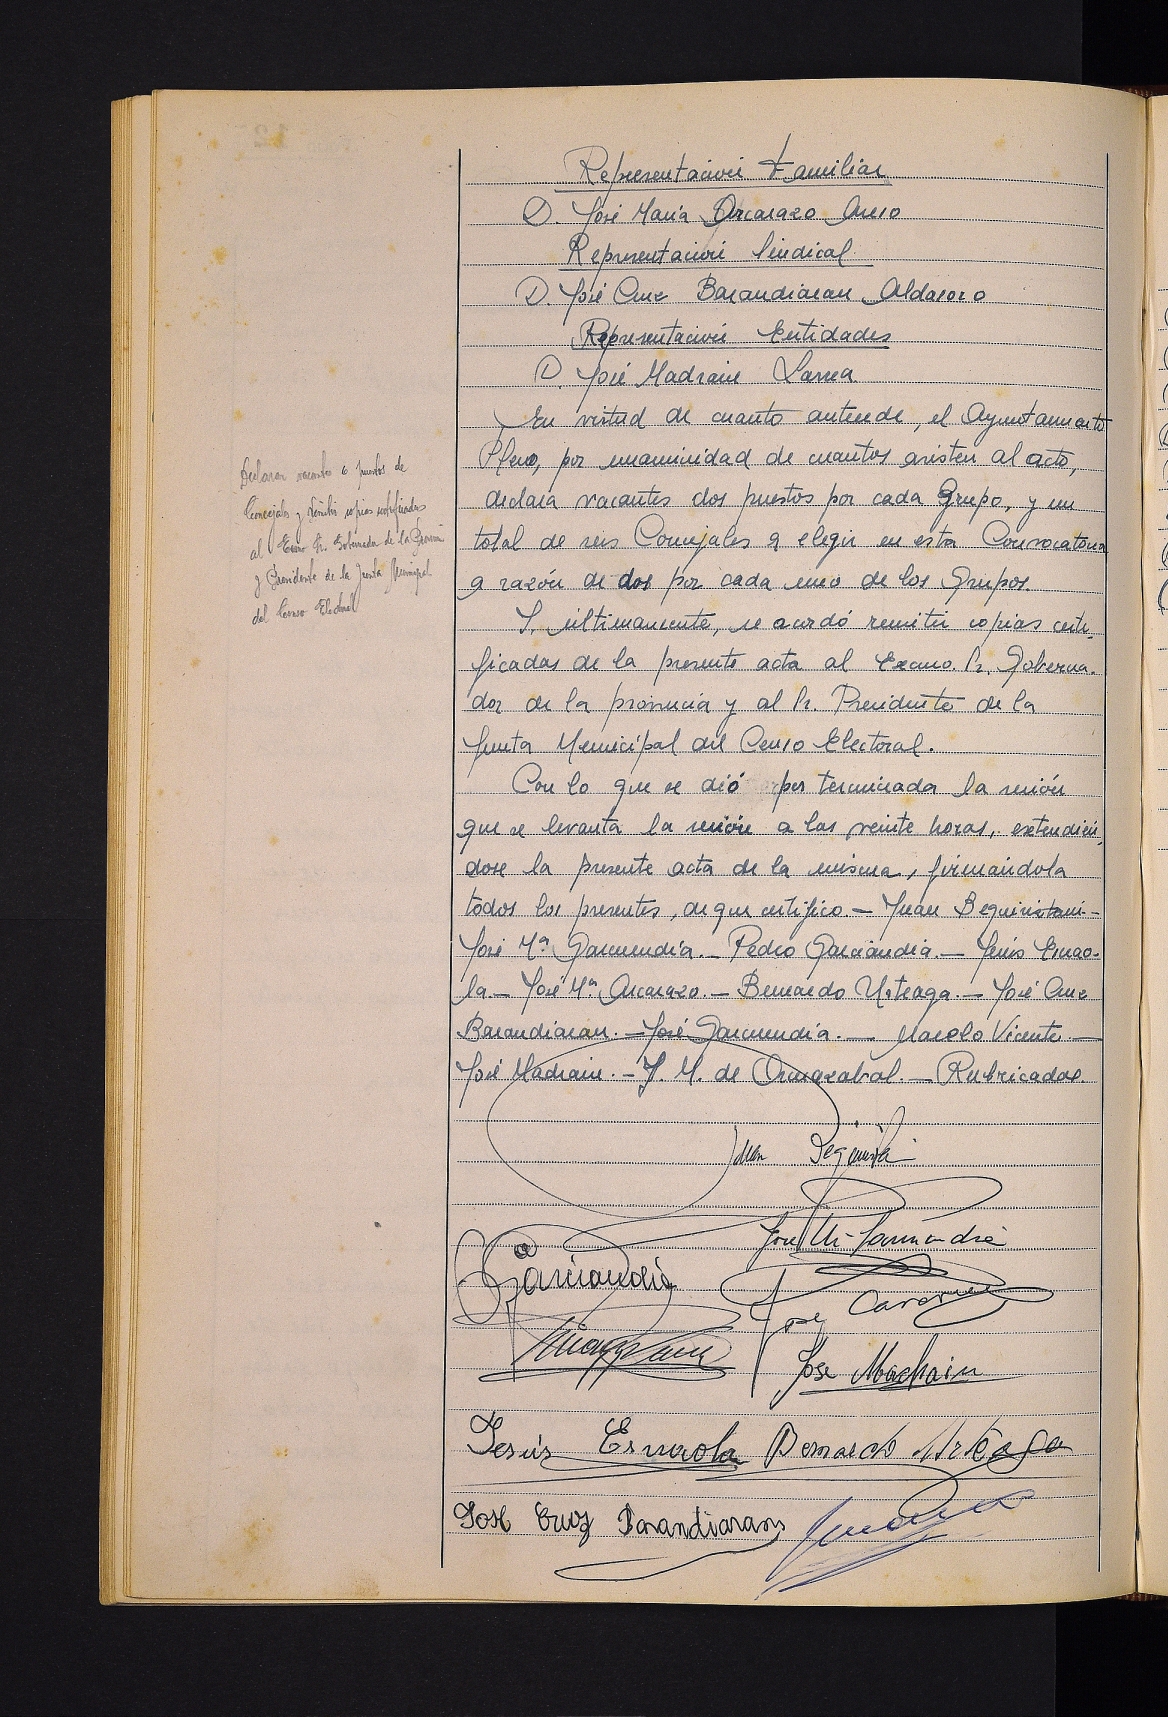 Representación Familiar
D. José María Arcarazo Auso
Representación Sindical
D. José Cruz Barandiaran Aldasoro
Representación Entidades
D. José Madrain Larrea
En virtud de cuanto antecede, el Ayuntamiento
Pleno, por unanimidad de cuantos asisten al acto,
declara vacantes dos puestos por cada Grupo, y un
total de seis Concejales a elegir en esta Convocatoria
a razón de dos por cada uno de los Grupos.
Y, últimamente, se acordó remitir copias certi-
ficadas de la presente acta al Excmo. Sr. Goberna-
dor de la provincia y al Sr. Presidente de la
Junta Municipal del Censo Electoral.
Con lo que se dió por terminada la sesión
que se levanta la sesión a las veinte horas, extendién-
dose la presente acta de la misma, firmándola
todos los presentes, de que certifico.- Juan Beguiristain-
José Mª Garmendia.- Pedro Garciandia.- Jesús Esnao-
la.- José Mª Arcarazo.- Bernardo Urteaga.- José Cruz
Barandiaran.- José Garmendia.- Manolo Vicente.-
José Madrain.- J. M. de Ormazabal.- Rubricados.
Declarar vacantes 6 puestos de
Concejales y remitir copias certificadas
al Excmo Sr. Gobernador de la Provincia
y Presidente de la Junta Municipal
del Censo Electoral
Juan
José Mª Garmendia
Garciandia
José
José Madrain
Jesús Esnaola Bernardo Urteaga
José Cruz Barandiaran